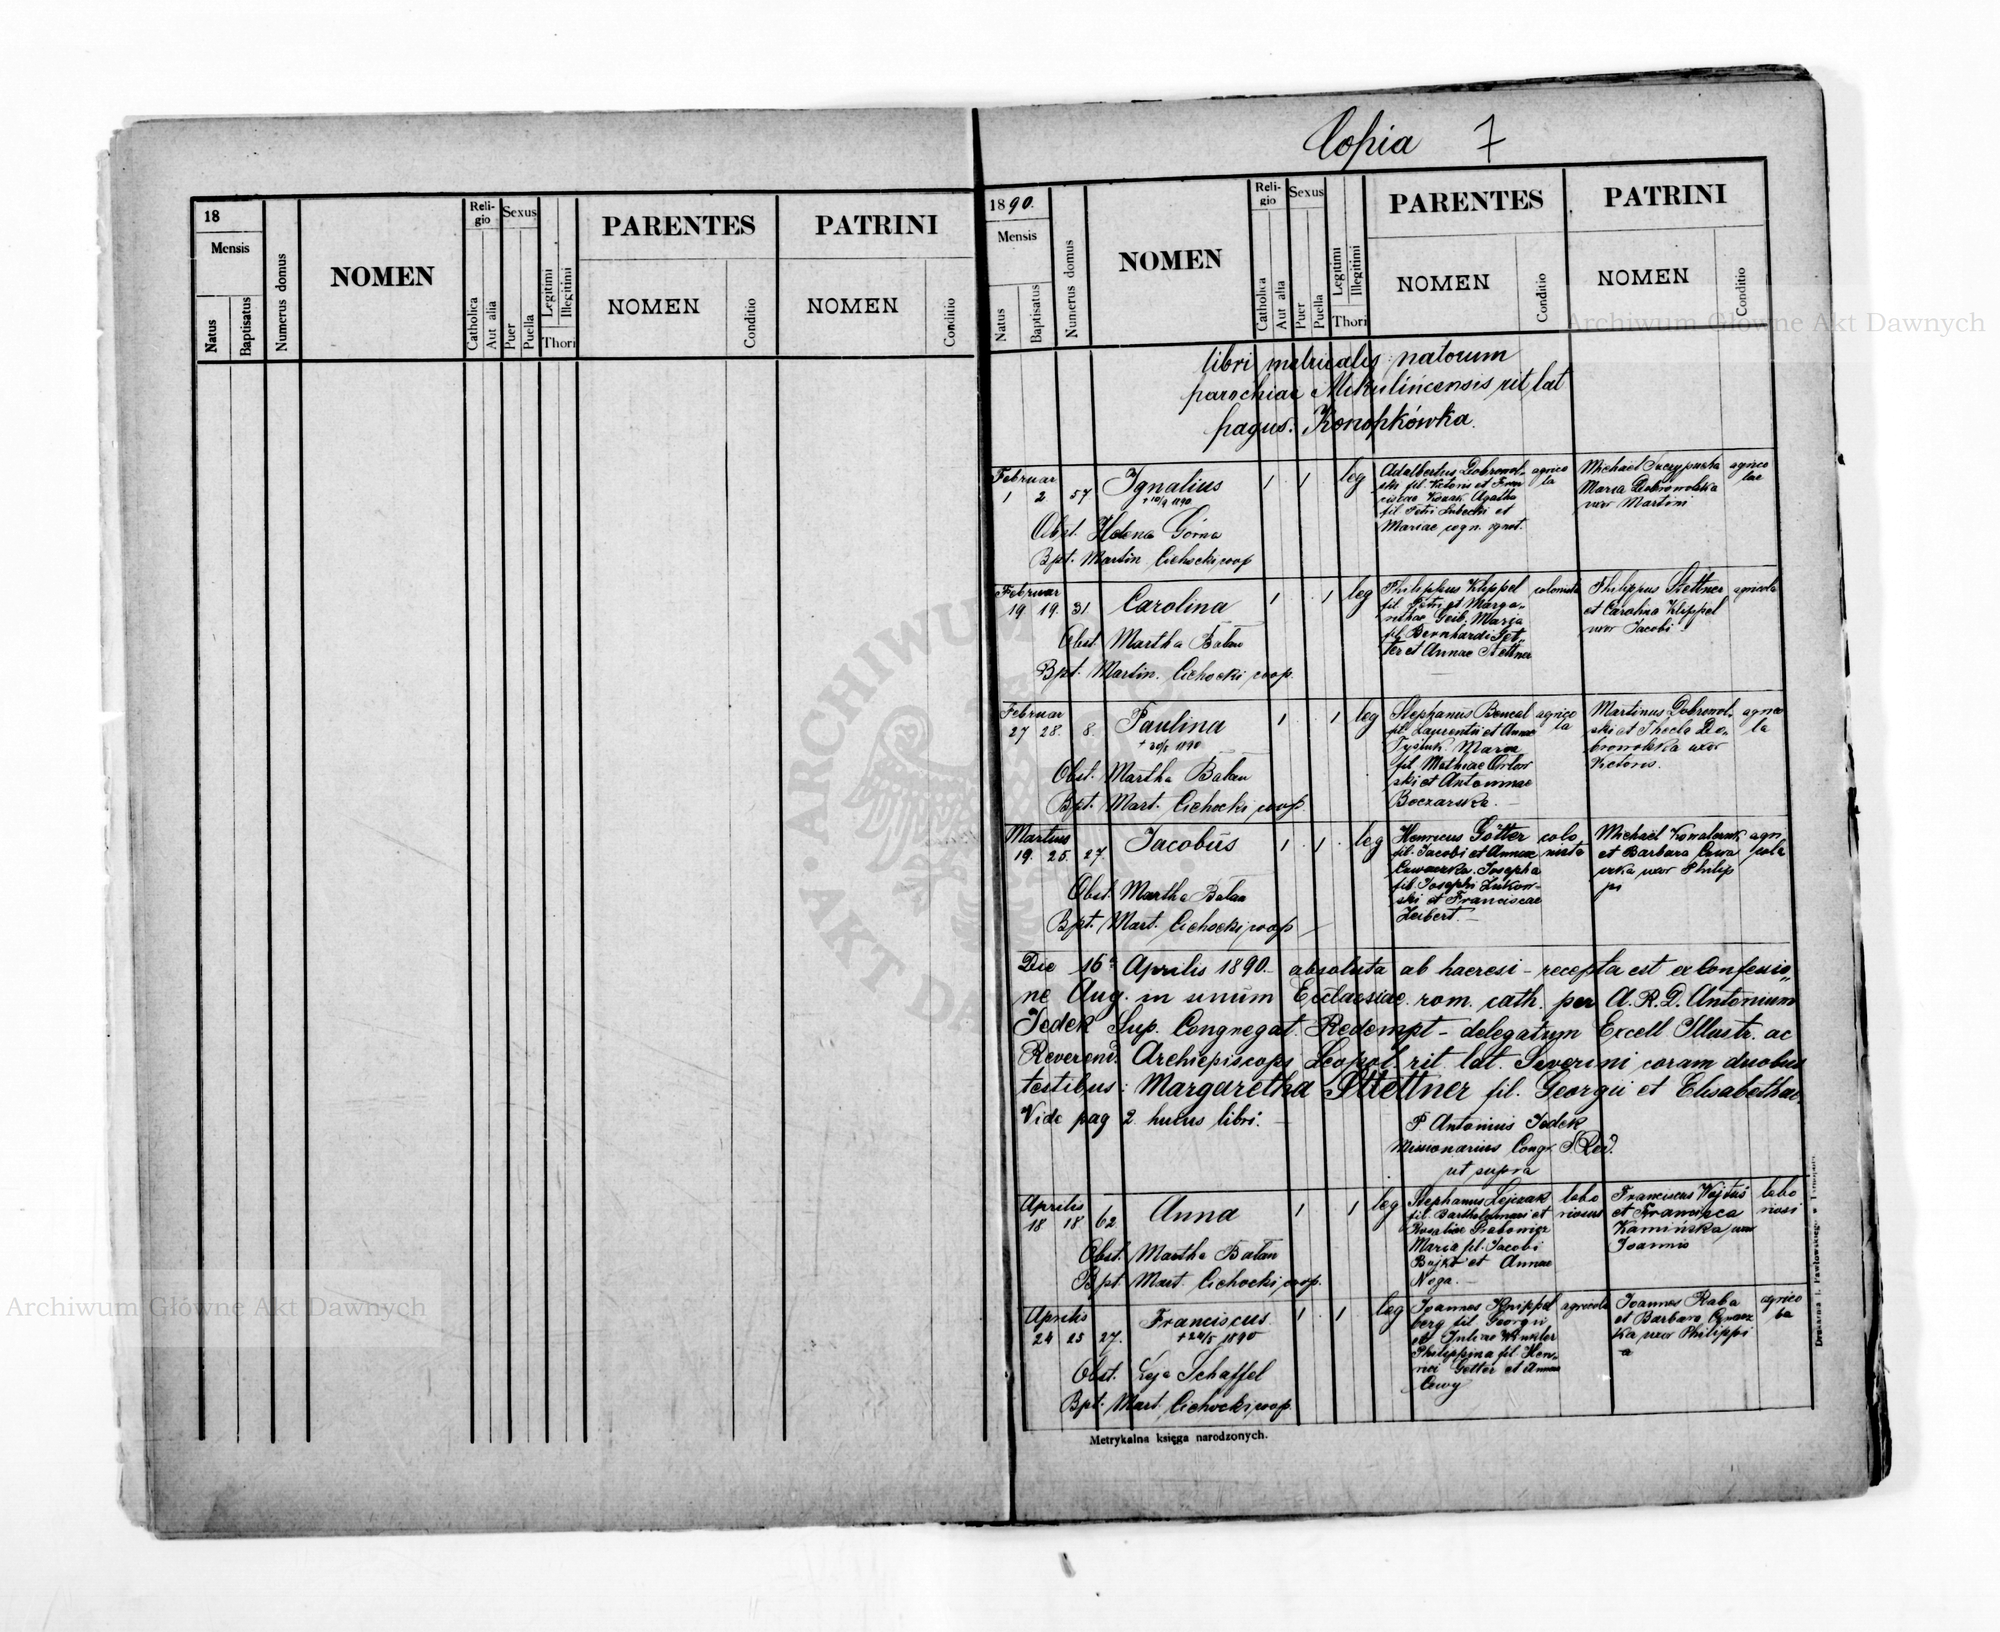 Copia 7
18
Mensis
Natus
Baptisatus
Numerus domus
NOMEN
Religio
Catholica
Aut alia
Sexus
Puer
Puella
Legitimi
Illegitimi
Thori
PARENTES
NOMEN
Conditio
PATRINI
NOMEN
Conditio
1890.
Mensis
Natus
Baptisatus
Numerus domus
NOMEN
Religio
Catholica
Aut alia
Sexus
Puer
Puella
Legitimi
Illegitimi
Thori
PARENTES
NOMEN
Conditio
PATRINI
NOMEN
Conditio
libri metricalis natorum
parochiae Mikulińcensis rit lat
pagus: Konopkówka.
Februar
1 2 57 Ignatius 1 1 leg
Obst. Helena Górna
Bpt. Martin Cichocki coop
Adalbertus Dobrowol-
ski fil. Victoris et Fran
ciscae Agatha
fil Petri Lubecki et
Mariae cogn. ignot.
agrico
la
Michael
Maria Dobrowolska
uxor Martini
agrico
lae
Februar
19 19. 31 Carolina 1 1 leg
Obst Martha Bałan
Bpt. Martin. Cichocki coop.
Philippus Klippel
fil. Petri et Marga-
rethae Geib. Maria
fil Bernhardi Get-
ter et Annae Stettner
colonista
Philippus Stettner
et Carolina Klippel
uxor Jacobi
agricola
Februar
27 28. 8. Paulina 1 1 leg
Obst. Martha Bałan
Bpt. Mart. Cichocki coop.
Stephanus Bencal
fil. Laurentii et Annae
Maria
fil Mathiae Orłow
ski et Antoninae
Boczarska.
agrico
la
Martinus Dobrowol-
ski et Thecla Do-
browolska uxor
Victoris.
agrico
la
Martius
19. 25. 27. Jacobus 1 1 leg
Obst. Martha Bałan
Bpt. Mart. Cichocki coop
Henricus Götter
fil. Jacobi et Annae
Josepha
fil. Josephi Żukow-
ski et Franciscae
Leibert.
colo
nista
Michael Kowalczuk
et Barbara
uxor Philip
pi
agri
cola
Die 16a Aprilis 1890. absoluta ab haeresi - recepta est ex Confessio-
ne Aug. in sinum Ecclaesiae rom. cath. per A. R. D. Antonium
Jedek Sup. Congregat. Redempt - delegatum Excell Illustr. ac
Reverend. Archiepiscops Leopol. rit. lat. Severini coram duobus
testibus: Margaretha Stettner fil. Georgii et Elisabethae.
Vide pag 2. huius libri.
P Antonius Jedek
Missionarius Congr. S. Red.
ut supra
Aprilis
18 18 62 Anna 1 1 leg
Obst. Martha Bałan
Bpt Mart. Cichocki coop.
Stephanus Lejczak
fil Bartholomaei et
Rosaliae
Maria fil. Jacobi
Bojko et Annae
Noga.
labo
riosus
Franciscus Wojtuś
et Francisca
Kamińska uxor
Joannis
labo
riosi
Aprilis
24 25 27. Franciscus 1 1 leg
+24/5 1890
Obst. Leje Schaffel
Bpt. Mart. Cichocki coop.
Joannes Knippel
berg fil Georgii
et Juliae Winkler
Philippina fil Hen-
rici Getter et Annae
agricola
Joannes Raba
et Barbara
uxor Philippi
agrico
la
Metrykalna księga narodzonych.
Archiwum Główne Akt Dawnych
Archiwum Główne Akt Dawnych